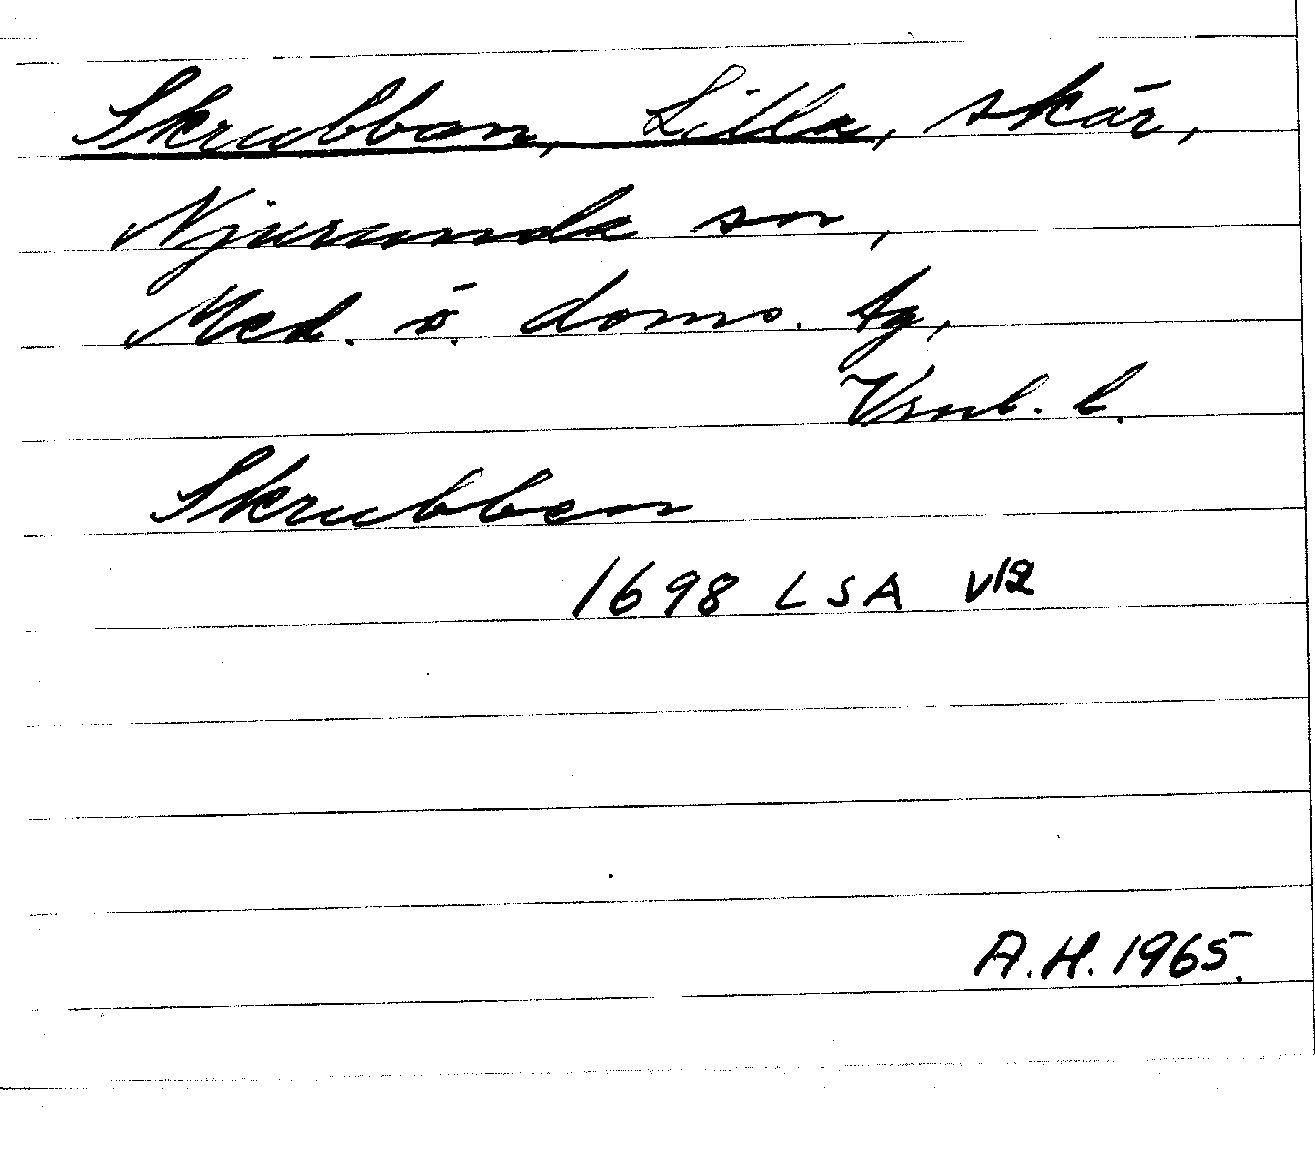 Skrubban, Lilla, skär,
Njurunda sn,
Med. ö. doms. tg,
Vrnl. l.
Skrubben
1698 LSA V12
A.H. 1965.